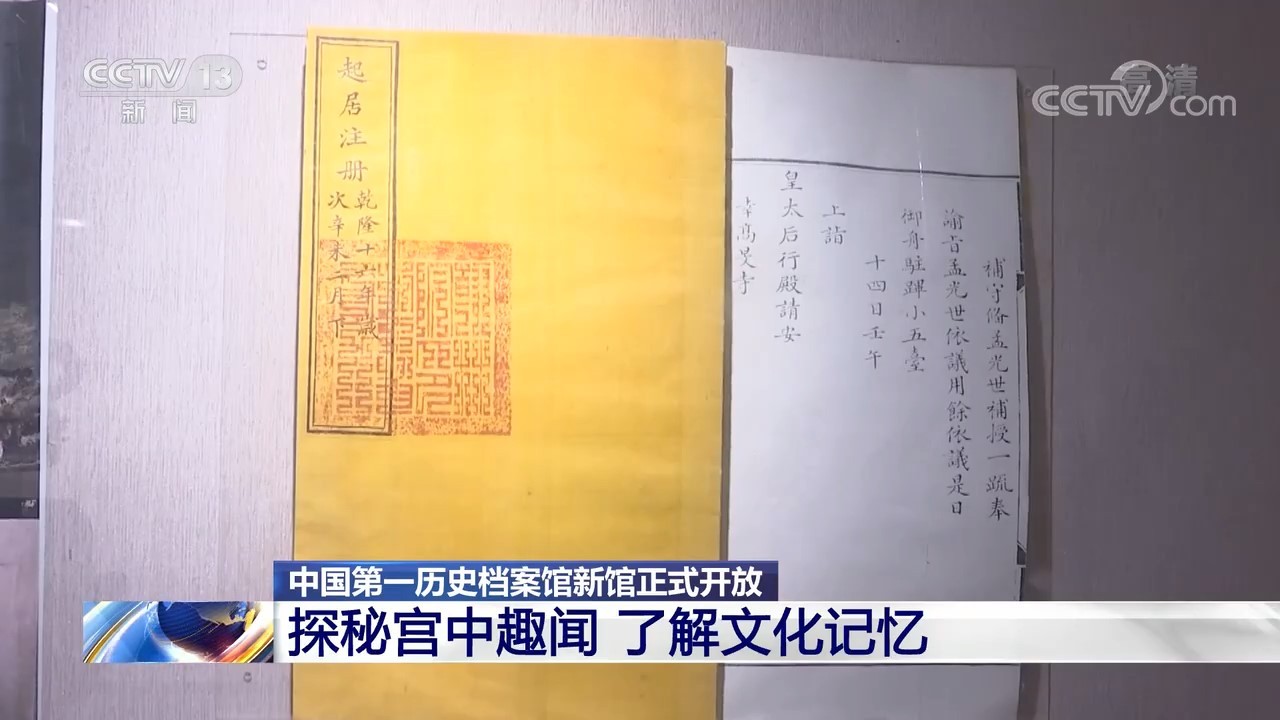 CCTV 13
新闻
高清
CCTV com
起居注册
乾隆十六年歲
次辛未二月下
補守俻孟光世補授一疏奉
諭旨孟光世依議用餘依議是日
御舟駐蹕小五臺
十四日壬午
上詣
皇太后行殿請安
幸髙旻寺
中国第一历史档案馆新馆正式开放
探秘宫中趣闻 了解文化记忆